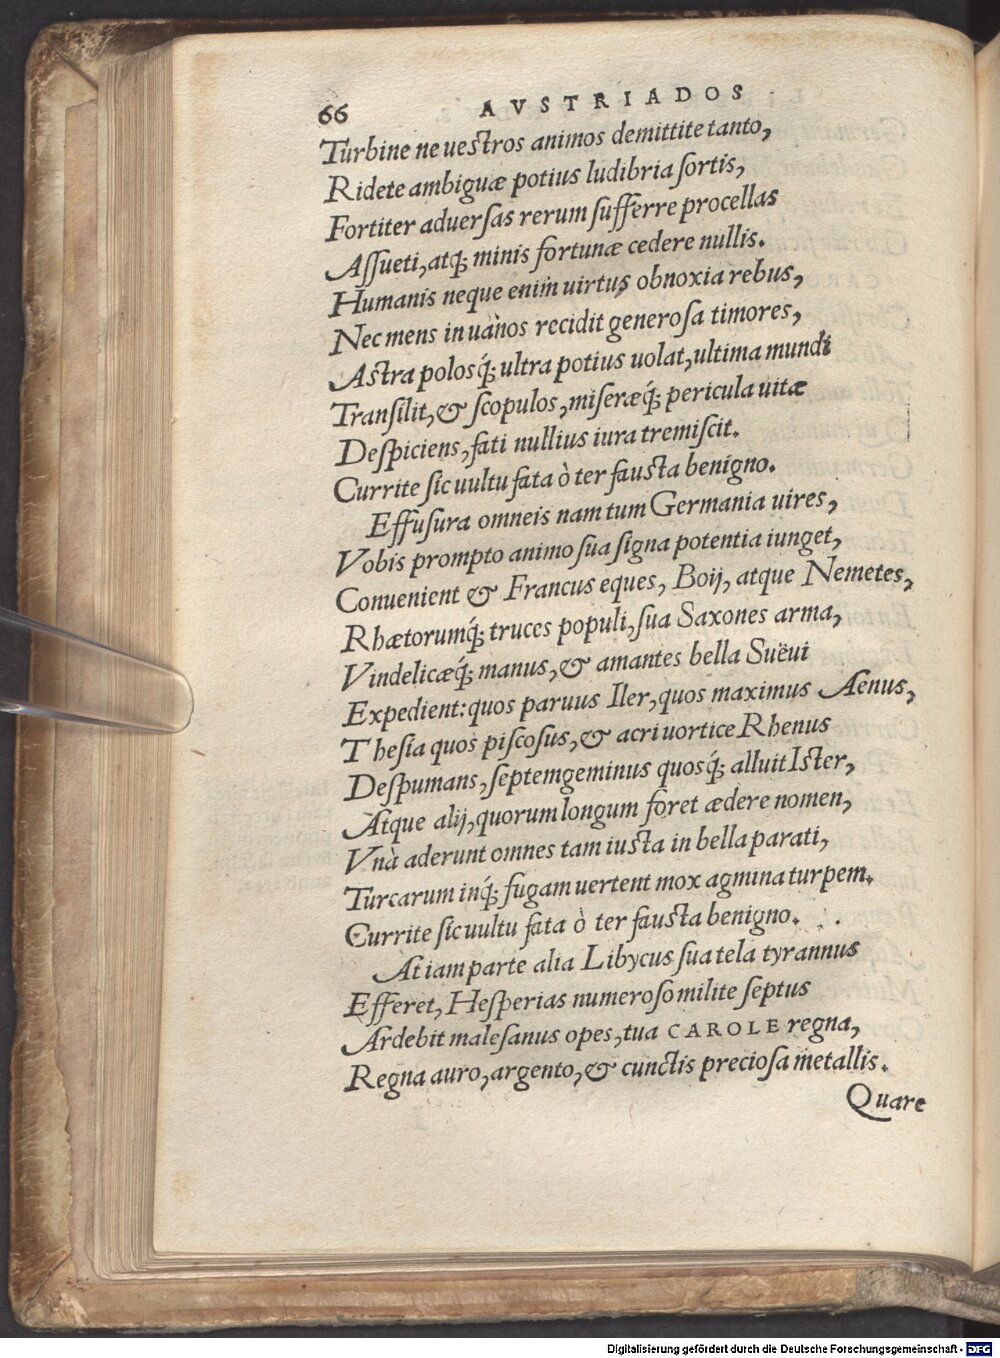 66 AVSTRIADOS
Turbine ne uestros animos demittite tanto,
Ridete ambiguæ potius ludibria sortis,
Fortiter aduersas rerum sufferre procellas
Assueti, atq; minis fortunæ cedere nullis.
Humanis neque enim uirtus obnoxia rebus,
Nec mens in uanos recidit generosa timores,
Astra polosq́; ultra potius uolat, ultima mundi
Transilit, & scopulos, miseræq́; pericula uitæ
Despiciens, fati nullius iura tremiscit.
Currite sic uultu fata ò ter fausta benigno.
Effusura omneis nam tum Germania uires,
Vobis prompto animo sua signa potentia iunget,
Conuenient & Francus eques, Boij, atque Nemetes,
Rhætorumq́; truces populi, sua Saxones arma,
Vindelicæq́; manus, & amantes bella Suëui
Expedient: quos paruus Iler, quos maximus Aenus,
Thesia quos piscosus, & acri uortice Rhenus
Despumans, septemgeminus quosq́; alluit Ister,
Atque alij, quorum longum foret ædere nomen,
Vnà aderunt omnes tam iusta in bella parati,
Turcarum inq́; fugam uertent mox agmina turpem.
Currite sic uultu fata ò ter fausta benigno.
At iam parte alia Libycus sua tela tyrannus
Efferet, Hesperias numeroso milite septus
Ardebit malesanus opes, tua CAROLE regna,
Regna auro, argento, & cunctis preciosa metallis.
Quare
Digitalisierung gefördert durch die Deutsche Forschungsgemeinschaft - DFG